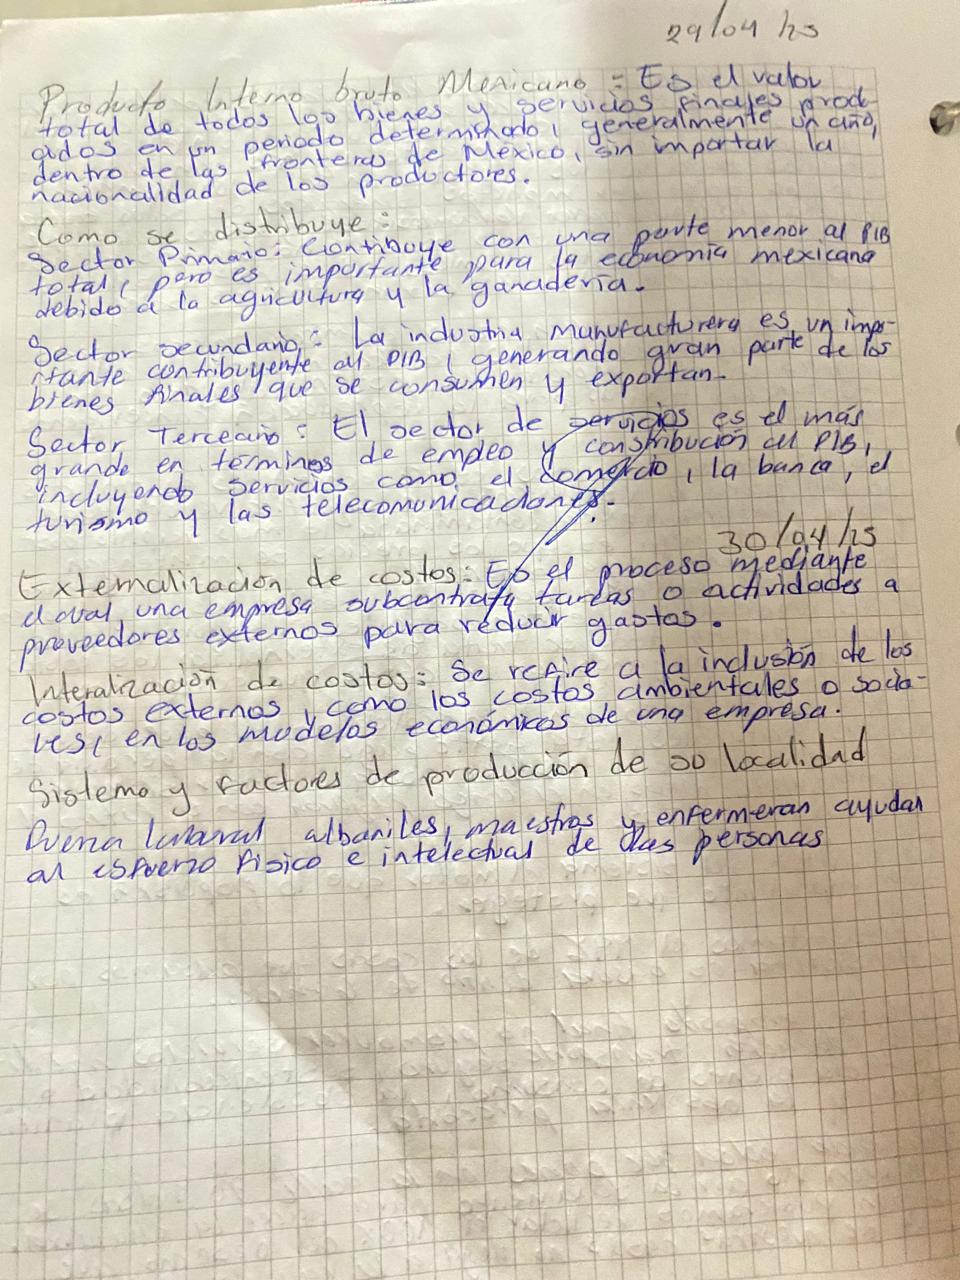 29/04 hs
Producto Interno bruto Mexicano: Es el valor
total de todos los bienes y servicios finales prod-
uidos en un periodo determinado, generalmente un año,
dentro de las fronteras de México, sin importar la
nacionalidad de los productores.
Como se distribuye:
Sector Primario: Contibuye con una parte menor al PIB
total, pero es importante para la economía mexicana
debido a la agricultura y la ganadería.
Sector secundario: La industria manufacturera es un impo-
rtante contribuyente al PIB, generando gran parte de los
bienes finales que se consumen y exportan.
Sector Terceario: El sector de servicios es el más
grande en términos de empleo y constribución al PIB,
incluyendo servicios como el comercio, la banca, el
turismo y las telecomunicaciones.
30/04/hs
Externalización de costos: Es el proceso mediante
el cual una empresa subcontrata tareas o actividades a
proveedores externos para reducir gastos.
Interalización de costos: Se refire a la inclusión de los
costos externos, como los costos ambientales o socia-
les, en los modelos económicos de una empresa.
Sistema y factores de producción de su localidad
laboral albaniles, maestros y enfermeran ayudan
al esfuerzo fisico e intelectual de las personas